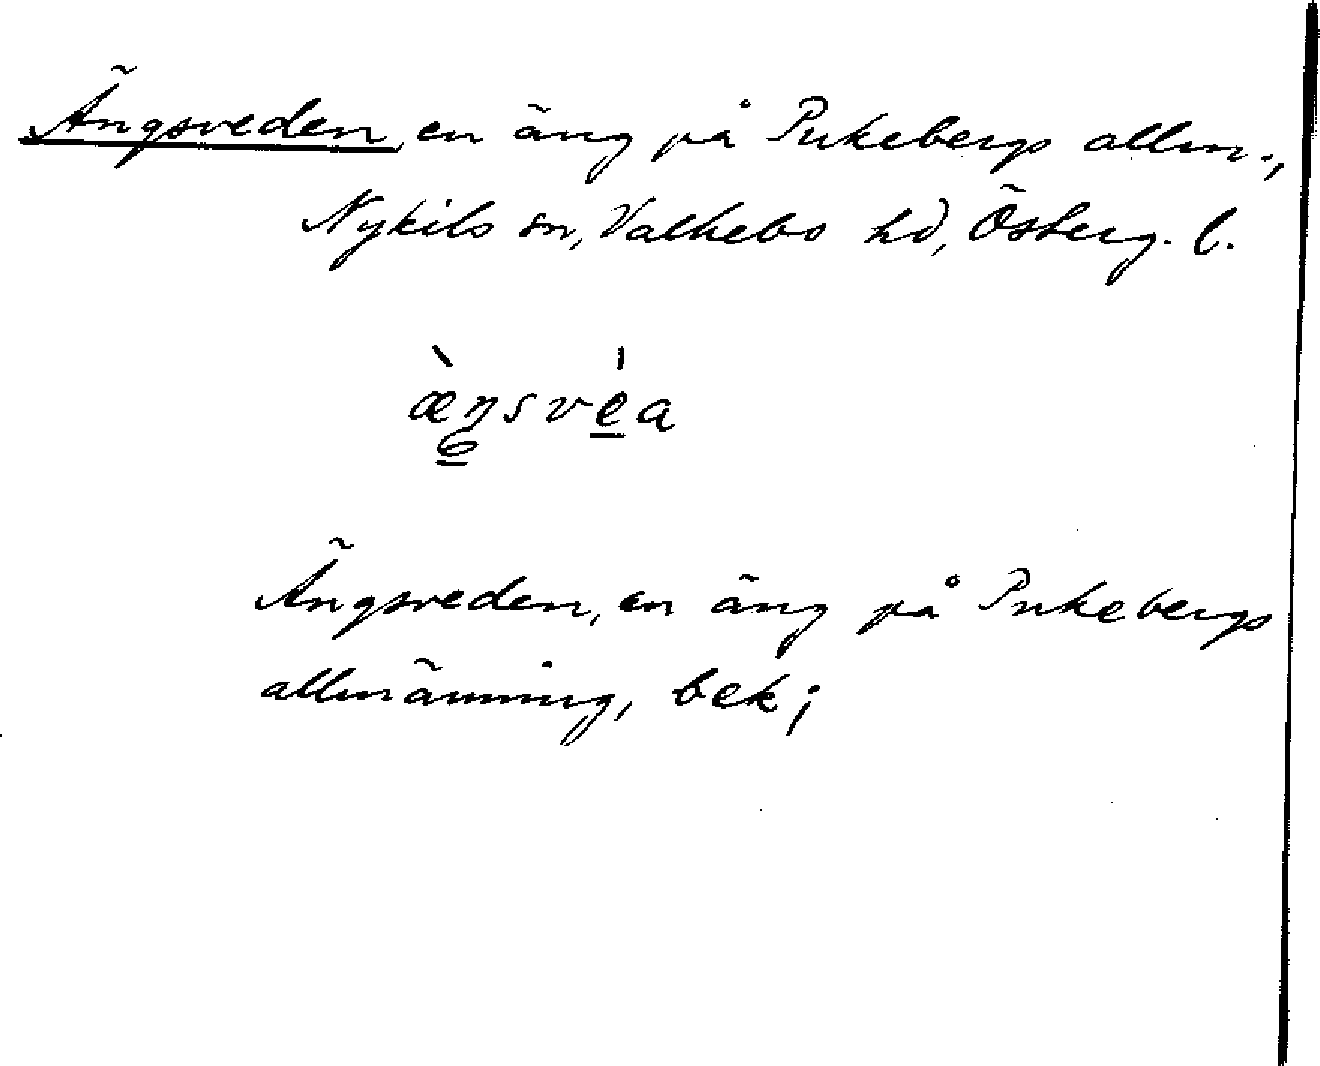 Ängsveden, en äng på Pukebergs allm.,
Nykils sn, Valkebo hd, Österg. l.
æ̀ŋsvéa
Ängsveden, en äng på Pukebergs
allmänning, bek;